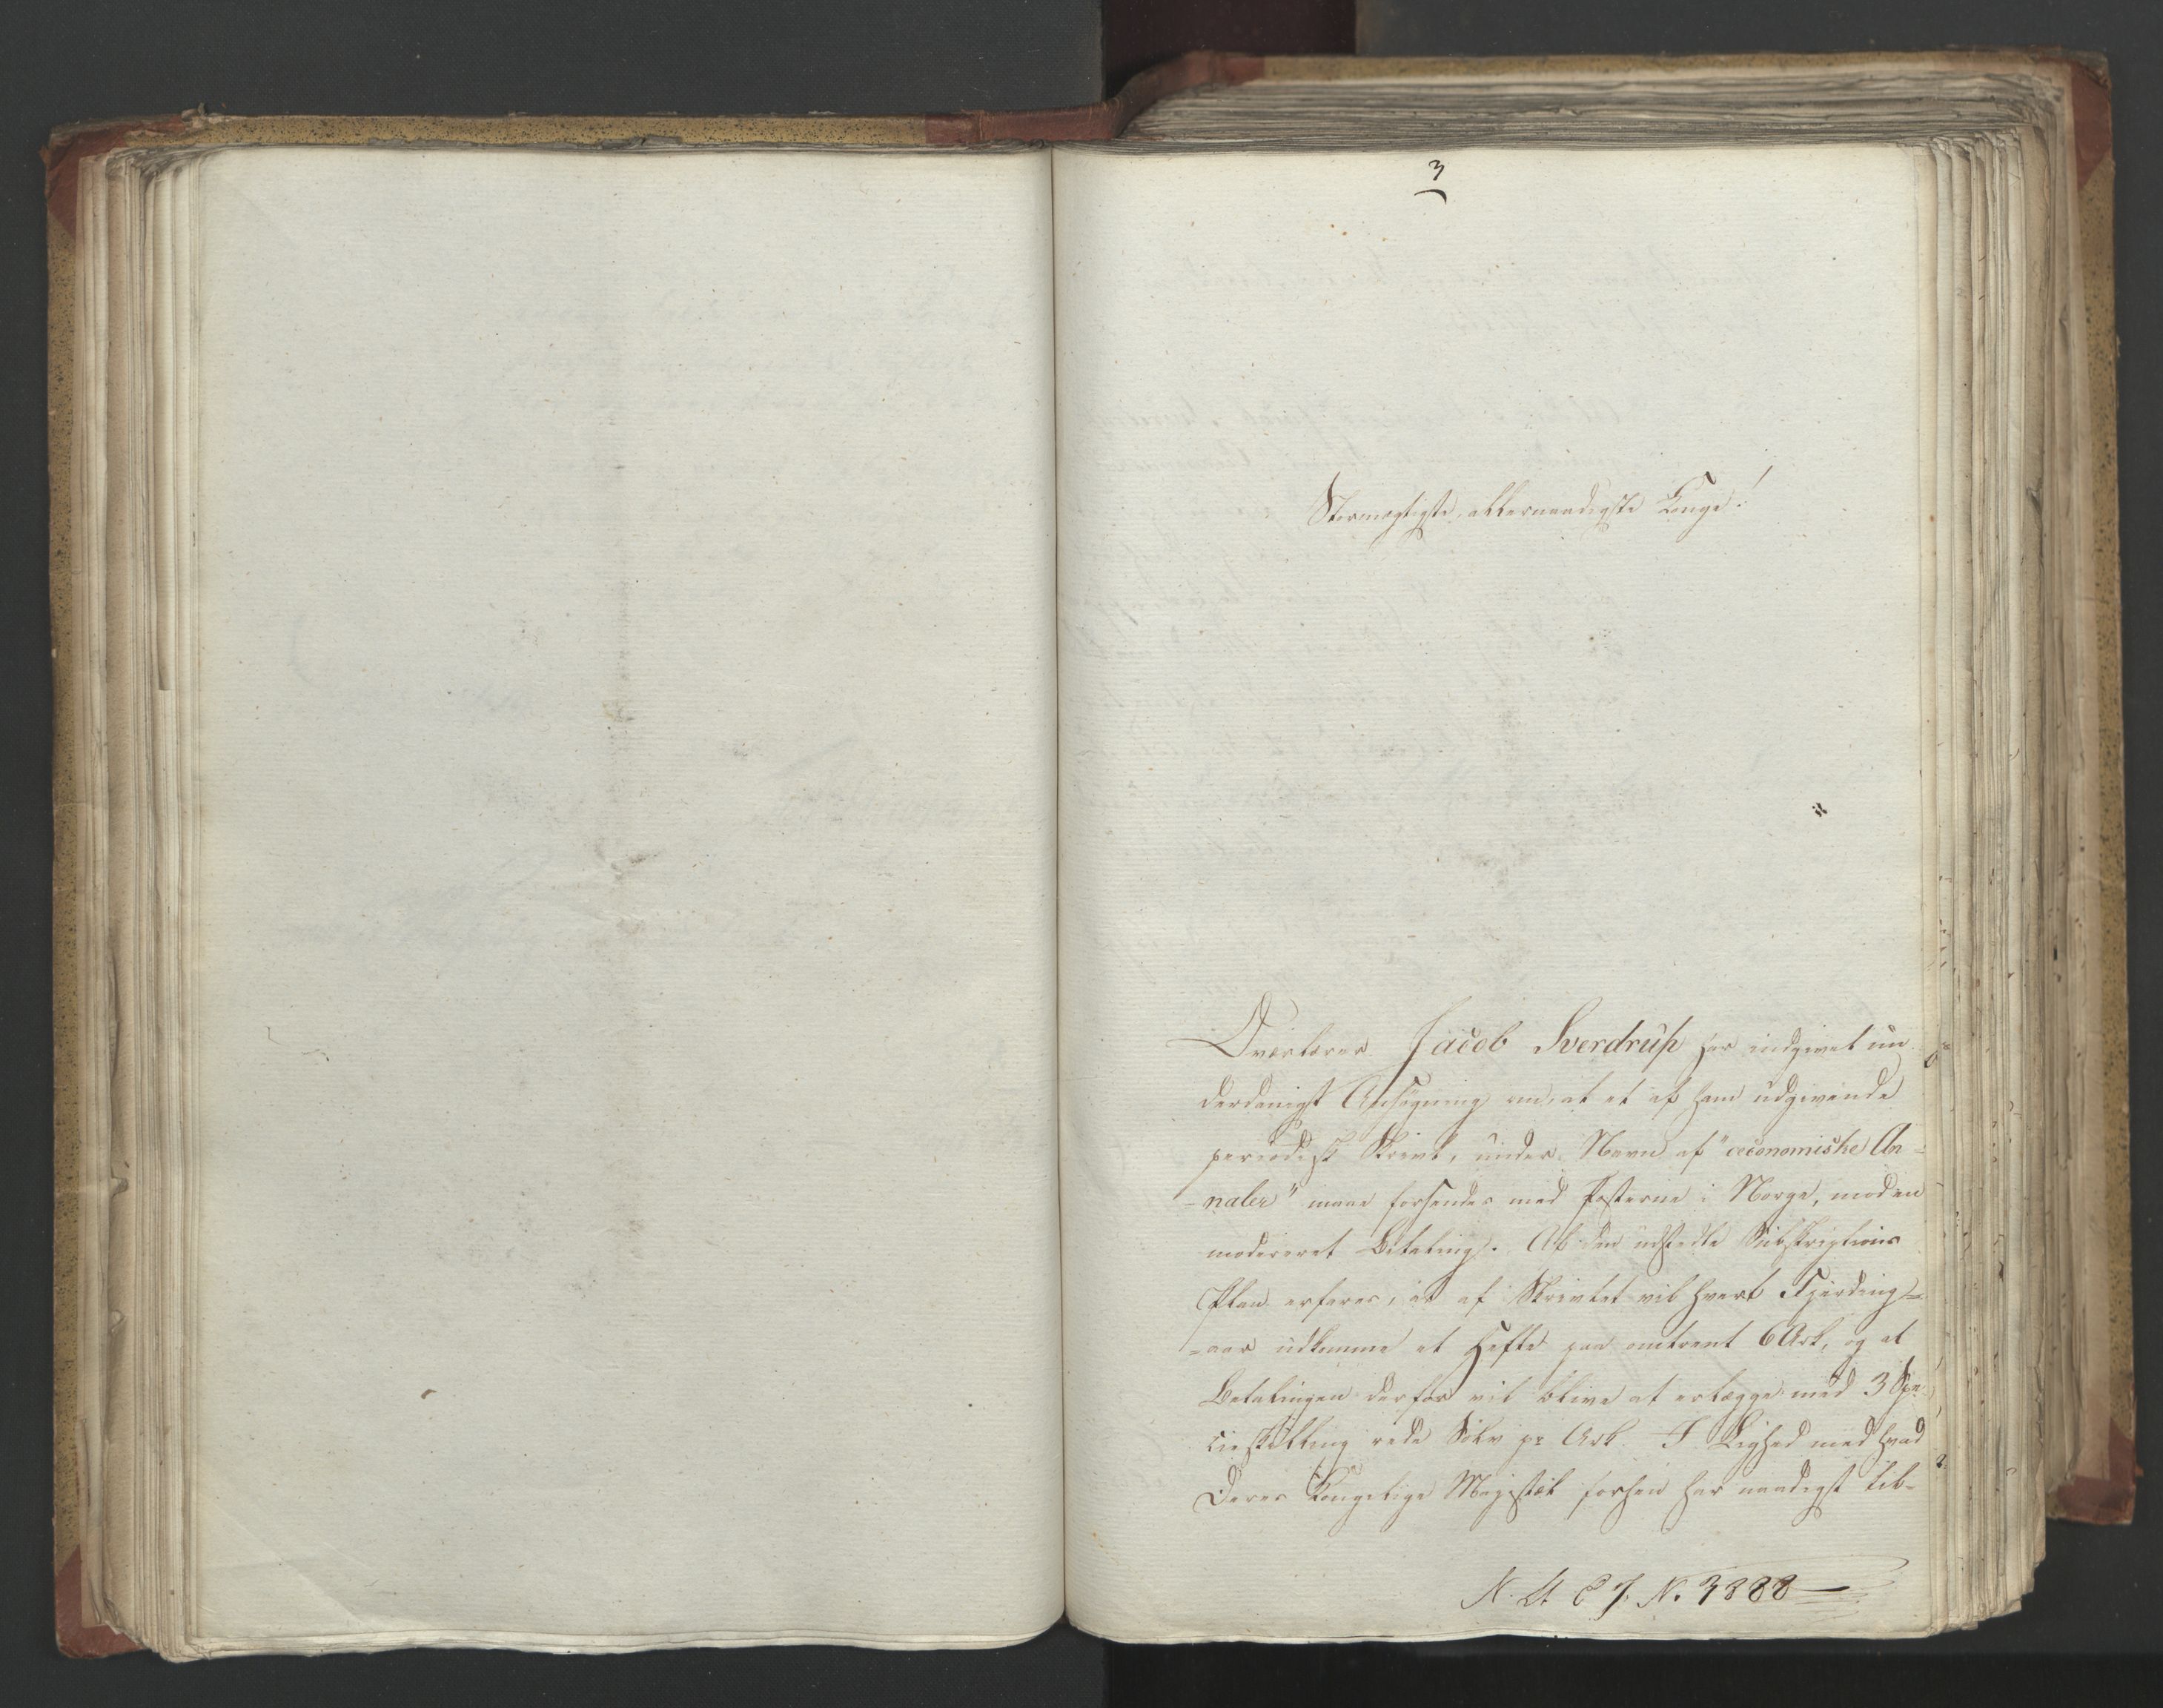 3
Stormægtigste, allernaadigste Konge!
Overlærer Jacob Sverdrup har indgivet un
derdanigst Ansøgning om, at et af ham udgivende
periodisk Skrivt, under Navn af "oeconomiske An-
-naler" maae forsendes med Posterne i Norge, mod en
modereret Betaling. Af den udstedte Subskriptions
Plan erfares, at af Skrivtet vil hvert Fjerding-
-aar udkomme et Hefte paa omtrent 6 Ark, og at
Betalingen derfor vil blive at erlægge med 3 Spe-
cieskilling rede Sølv pr Ark. I Lighed med hvad
Deres Kongelige Majestæt forhen har naadigst til-
N. A C J. N. 3888